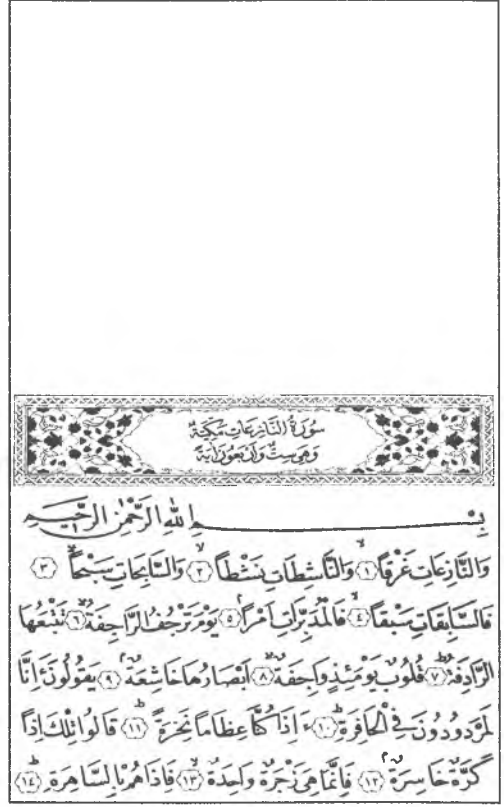 سُورَةُ النَّازِعَاتِ مَكِّيَّةٌ
وَهِيَ سِتٌّ وَاَرْبَعُونَ اٰيَةً
بِسْمِ اللّٰهِ الرَّحْمٰنِ الرَّحِيمِ
وَالنَّازِعَاتِ غَرْقاًۙ ﴿١﴾ وَالنَّاشِطَاتِ نَشْطاًۙ ﴿٢﴾ وَالسَّابِحَاتِ سَبْحاًۙ ﴿٣﴾
فَالسَّابِقَاتِ سَبْقاًۙ ﴿٤﴾ فَالْمُدَبِّرَاتِ اَمْراًۢ ﴿٥﴾ يَوْمَ تَرْجُفُ الرَّاجِفَةُۙ ﴿٦﴾ تَتْبَعُهَا
الرَّادِفَةُۜ ﴿٧﴾ قُلُوبٌ يَوْمَئِذٍ وَاجِفَةٌۙ ﴿٨﴾ اَبْصَارُهَا خَاشِعَةٌۢ ﴿٩﴾ يَقُولُونَ ءَاِنَّا
لَمَرْدُودُونَ فِي الْحَافِرَةِۜ ﴿١٠﴾ ءَاِذَا كُنَّا عِظَاماً نَخِرَةًۜ ﴿١١﴾ قَالُوا تِلْكَ اِذاً
كَرَّةٌ خَاسِرَةٌۢ ﴿١٢﴾ فَاِنَّمَا هِيَ زَجْرَةٌ وَاحِدَةٌۙ ﴿١٣﴾ فَاِذَا هُمْ بِالسَّاهِرَةِۜ ﴿١٤﴾